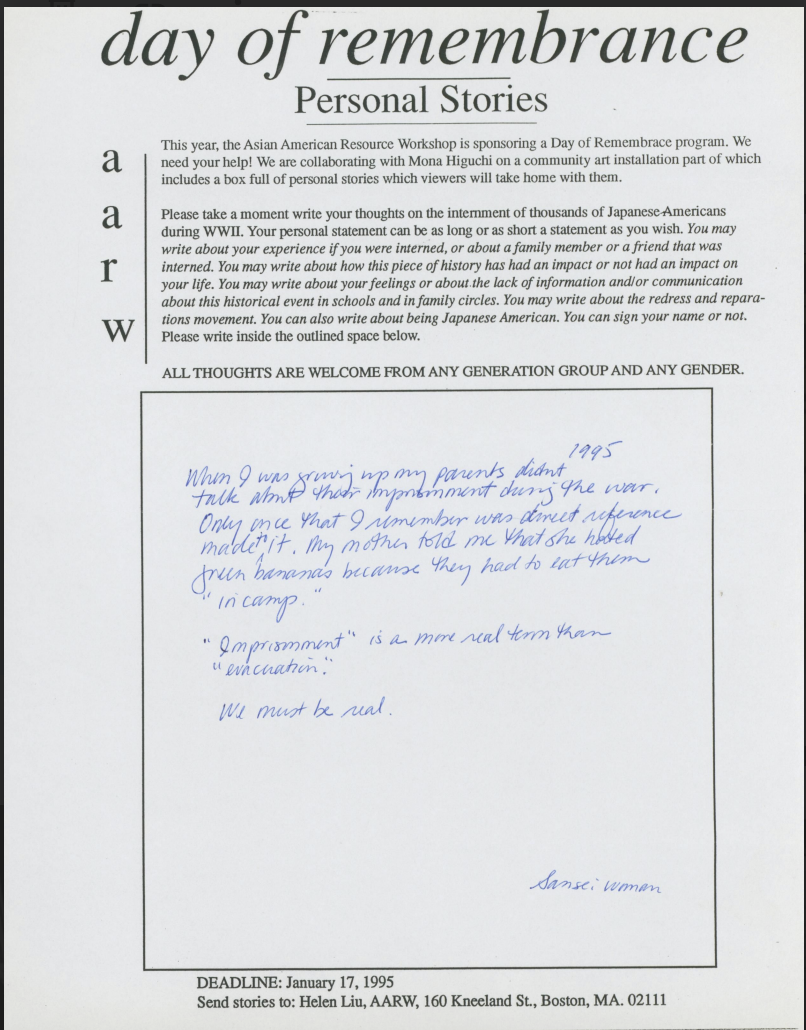 day of remembrance
Personal Stories
a
a
r
w
This year, the Asian American Resource Workshop is sponsoring a Day of Remembrace program. We
need your help! We are collaborating with Mona Higuchi on a community art installation part of which
includes a box full of personal stories which viewers will take home with them.
Please take a moment write your thoughts on the internment of thousands of Japanese-Americans
during WWII. Your personal statement can be as long or as short a statement as you wish. You may
write about your experience if you were interned, or about a family member or a friend that was
interned. You may write about how this piece of history has had an impact or not had an impact on
your life. You may write about your feelings or about the lack of information and/or communication
about this historical event in schools and in family circles. You may write about the redress and repara-
tions movement. You can also write about being Japanese American. You can sign your name or not.
Please write inside the outlined space below.
ALL THOUGHTS ARE WELCOME FROM ANY GENERATION GROUP AND ANY GENDER.
1995
When I was growing up my parents didnt
talk about their imprisonment during the war.
Only once that I remember was direct reference
made to it. My mother told me that she hated
green bananas because they had to eat them
"in camp."
"Imprisonment" is a more real term than
"evacuation".
We must be real.
Sansei woman
DEADLINE: January 17, 1995
Send stories to: Helen Liu, AARW, 160 Kneeland St., Boston, MA. 02111